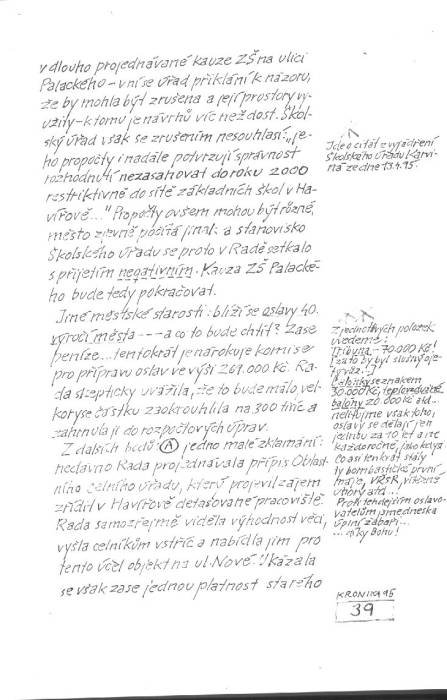 v dlouho projednávané kauze ZŠ na ulici
Palackého – v ní se úřad přiklání k názoru,
že by mohla být zrušena a její prostory vy-
užity – k tomu je návrhů víc než dost. Škol-
ský úřad však se zrušením nesouhlasí: „je-
ho propočty i nadále potvrzují správnost
rozhodnutí nezasahovat do roku 2000
restriktivně do sítě základních škol v Ha-
vířově..." Propočty ovšem mohou být různé,
město zjevně počítá jinak a stanovisko
Školského úřadu se proto v Radě setkalo
s přijetím negativním. Kauza ZŠ Palacké-
ho bude tedy pokračovat.
Jiné městské starosti: blíží se oslavy 40.
výročí města --- a co to bude chtít? Zase
peníze... tentokrát je nárokuje komise
pro přípravu oslav ve výši 269.000 Kč. Ra-
da skepticky uvážila, že to bude málo, vel-
koryse částku zaokrouhlila na 300 tisíc a
zahrnula ji do rozpočtových úprav.
Z dalších bodů: A jedno malé zklamání:
nedávno Rada projednávala přípis Oblast-
ního celního úřadu, který projevil zájem
zřídit v Havířově detašované pracoviště.
Rada samozřejmě viděla výhodnost věci,
vyšla celníkům vstříc a nabídla jim pro
tento účel objekt na ul. Nové. Ukázala
se však zase jednou platnost starého
Jde o citát z vyjádření
Školského úřadu Karvi-
ná ze dne 13.4.95.
Z jednotlivých položek
uvedeme:
Tribuna – 70.000 Kč!
za to by byl slušný oje-
Balónky se znakem
30.000 Kč, teplovzdušné
balóny 20.000 Kč atd...
nelitujme však toho,
oslavy se dělají jen
jednou za 10 let a ne
každoročně, jako kdysi.
Co asi tenkrát stály
ty bombastické první
máje, VŘSR, vítězné
únory atd...
Proti tehdejším oslavo-
vatelům jsme dneska
úplní žabaři...
... díky Bohu!
KRONIKA 95
39